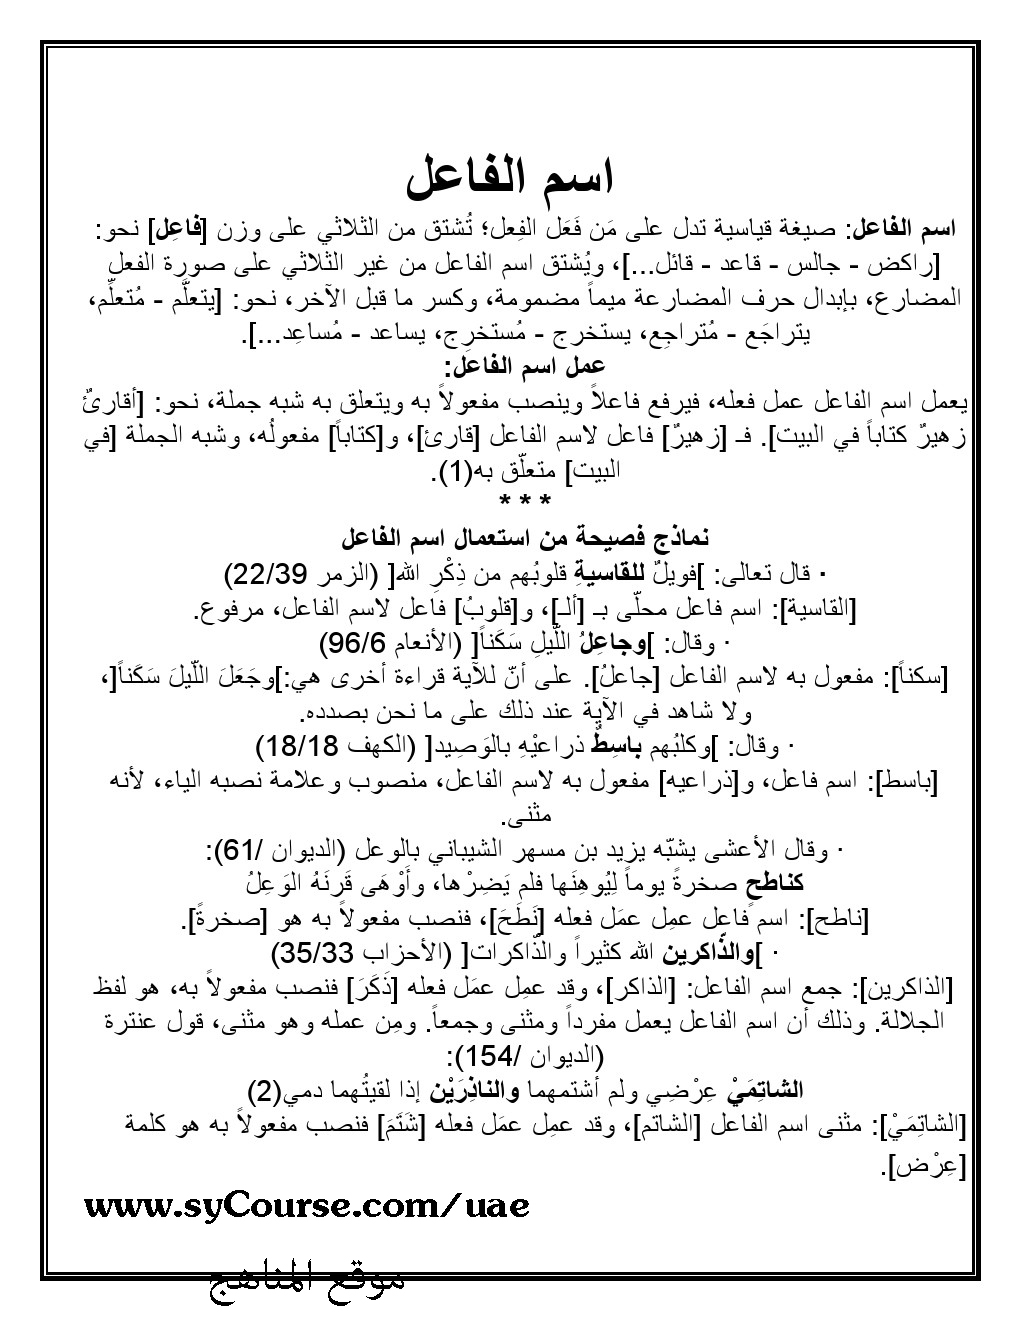 اسم الفاعل
اسم الفاعل: صيغة قياسية تدل على مَن فَعَل الفِعل؛ تُشتق من الثلاثي على وزن [فاعِل] نحو:
[راكض - جالس - قاعد - قائل...]، ويُشتق اسم الفاعل من غير الثلاثي على صورة الفعل
المضارع، بإبدال حرف المضارعة ميماً مضمومة، وكسر ما قبل الآخر، نحو: [يتعلَّم - مُتعلِّم،
يتراجَع - مُتراجِع، يستخرج - مُستخرِج، يساعد - مُساعِد...].
عمل اسم الفاعل:
يعمل اسم الفاعل عمل فعله، فيرفع فاعلاً وينصب مفعولاً به ويتعلق به شبه جملة، نحو: [أقارئٌ
زهيرٌ كتاباً في البيت]. فـ [زهيرٌ] فاعل لاسم الفاعل [قارئ]، و[كتاباً] مفعولُه، وشبه الجملة [في
البيت] متعلّق به(1).
* * *
نماذج فصيحة من استعمال اسم الفاعل
· قال تعالى: ]فويلٌ للقاسيةِ قلوبُهم من ذِكْرِ الله[ (الزمر 22/39)
[القاسية]: اسم فاعل محلّى بـ [ألـ]، و[قلوبُ] فاعل لاسم الفاعل، مرفوع.
· وقال: ]وجاعِلُ اللّيلِ سَكَناً[ (الأنعام 96/6)
[سكناً]: مفعول به لاسم الفاعل [جاعلُ]. على أنّ للآية قراءة أخرى هي:]وجَعَلَ اللّيلَ سَكَناً[،
ولا شاهد في الآية عند ذلك على ما نحن بصدده.
· وقال: ]وكلبُهم باسِطٌ ذراعيْهِ بالوَصِيد[ (الكهف 18/18)
[باسط]: اسم فاعل، و[ذراعيه] مفعول به لاسم الفاعل، منصوب وعلامة نصبه الياء، لأنه
مثنى.
· وقال الأعشى يشبّه يزيد بن مسهر الشيباني بالوعل (الديوان /61):
كناطحٍ صخرةً يوماً لِيُوهِنَها فلم يَضِرْها، وأَوْهَى قَرنَهُ الوَعِلُ
[ناطح]: اسم فاعل عمِل عمَل فعله [نَطَحَ]، فنصب مفعولاً به هو [صخرةً].
· ]والذّاكرين الله كثيراً والذّاكرات[ (الأحزاب 35/33)
[الذاكرين]: جمع اسم الفاعل: [الذاكر]، وقد عمِل عمَل فعله [ذَكَرَ] فنصب مفعولاً به، هو لفظ
الجلالة. وذلك أن اسم الفاعل يعمل مفرداً ومثنى وجمعاً. ومِن عمله وهو مثنى، قول عنترة
(الديوان /154):
الشاتِمَيْ عِرْضِي ولم أشتمهما والناذِرَيْن إذا لقيتُهما دمي(2)
[الشاتِمَيْ]: مثنى اسم الفاعل [الشاتم]، وقد عمِل عمَل فعله [شَتَمَ] فنصب مفعولاً به هو كلمة
[عِرْض].
www.syCourse.com/uae
موقع المناهج